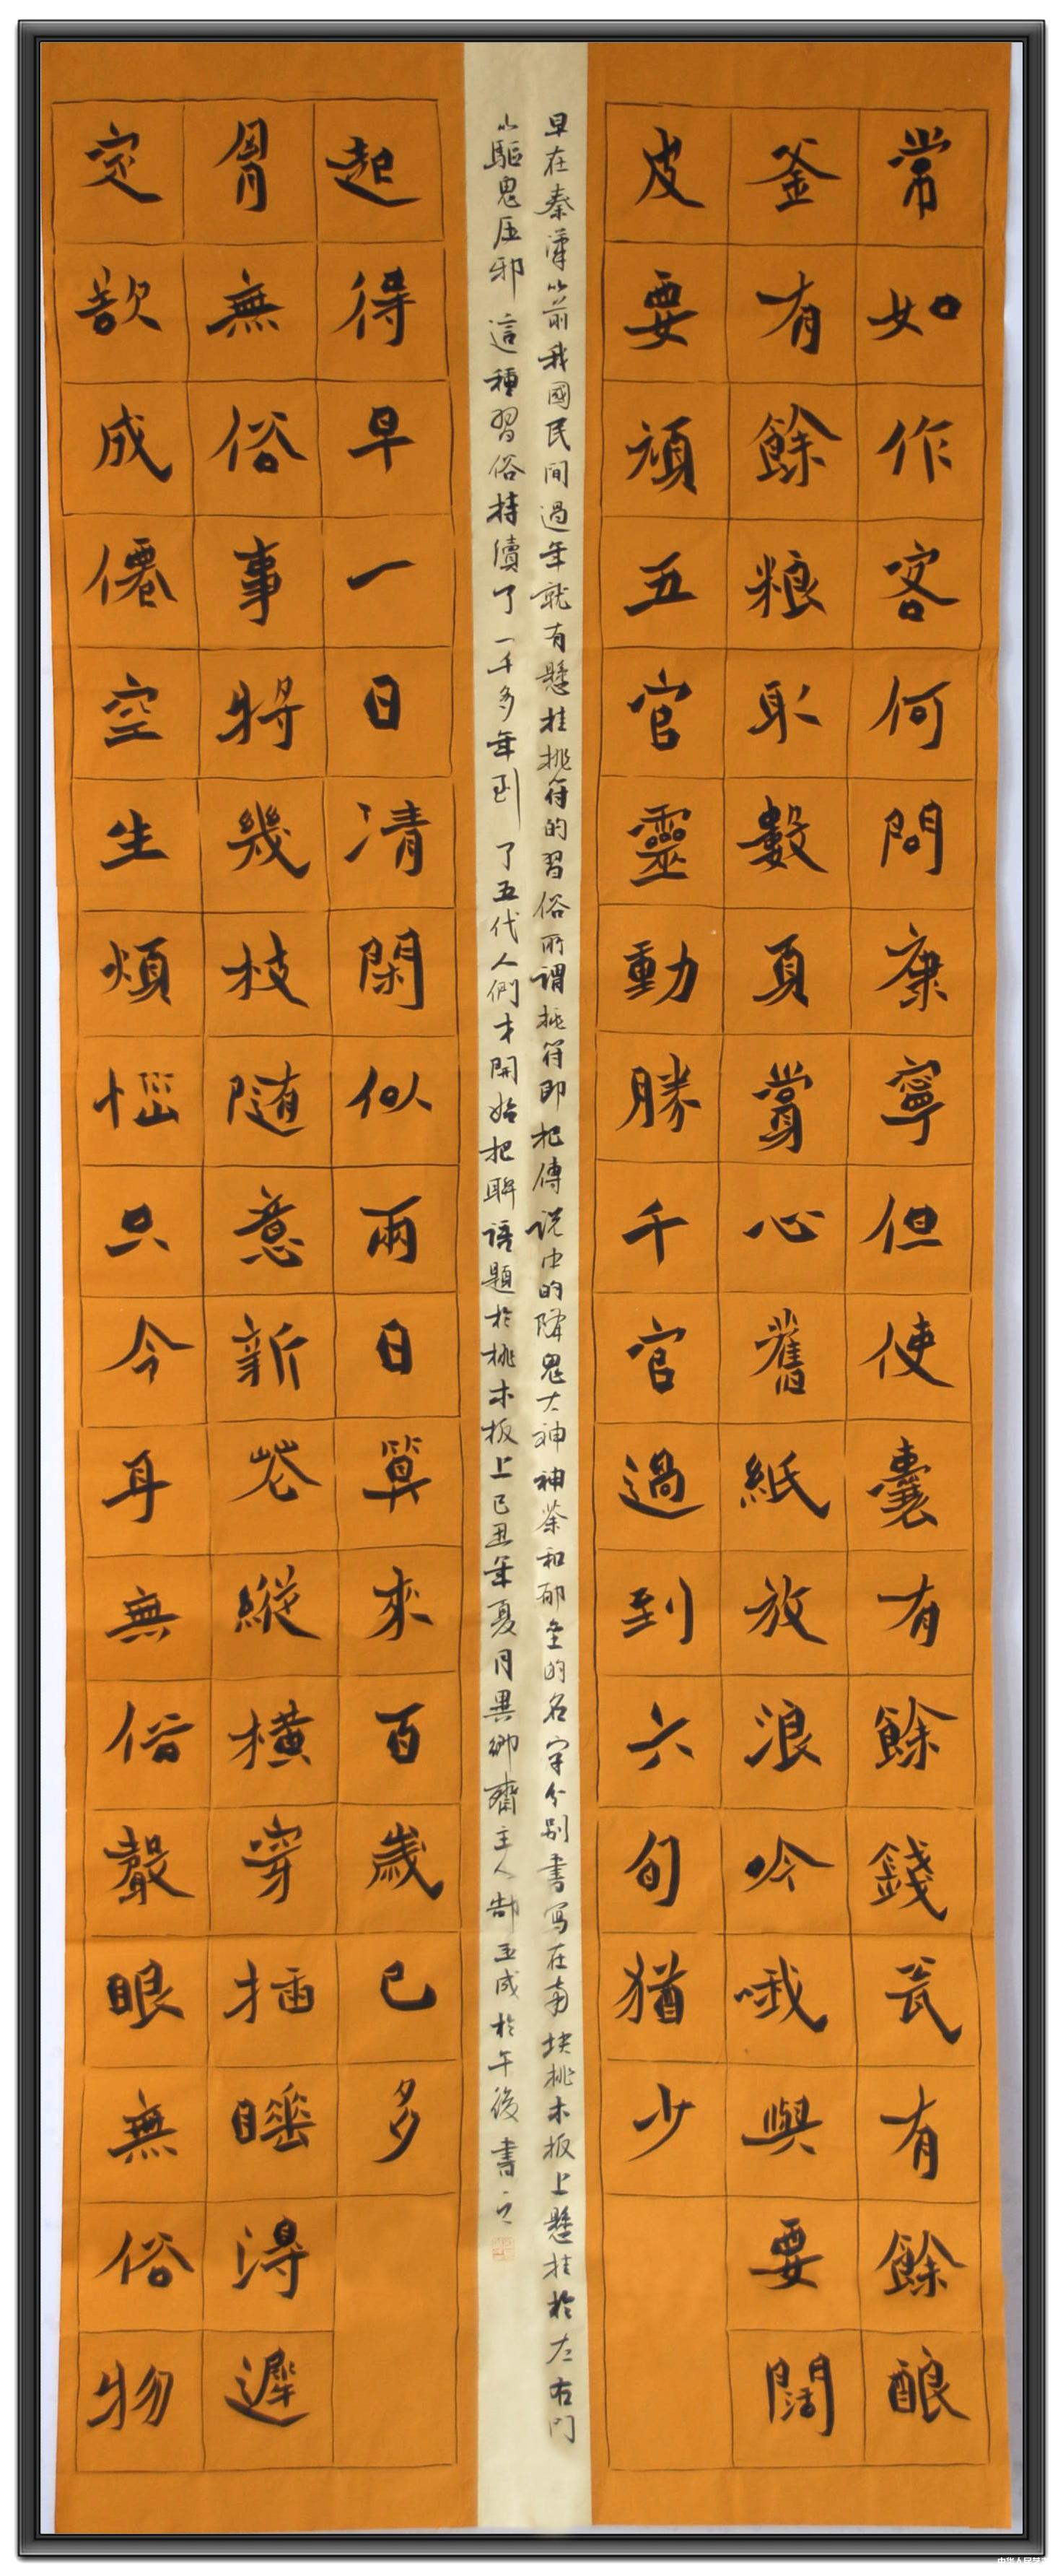 常如作客何問康寧但使囊有餘錢瓮有餘酿
釜有餘粮取數頁賞心舊紙放浪吟哦興要闊
皮要頑五官靈動勝千官過到六旬猶少
定欲成僊空生煩惱只今耳無俗聲眼無俗物
胷無俗事將幾枝随意新花縱橫穿插睡得遲
起得早一日清閑似兩日算來百歲已多
早在秦漢以前我國民間過年就有懸挂桃符的習俗所謂桃符即把傳说中的降鬼大神神荼和郁垒的名字分别書写在两块桃木板上懸挂於左右門
以驅鬼压邪這種習俗持續了一千多年到了五代人們才開始把聯語題於桃木板上己丑年夏月異鄉齋主人郜玉成於午後書之